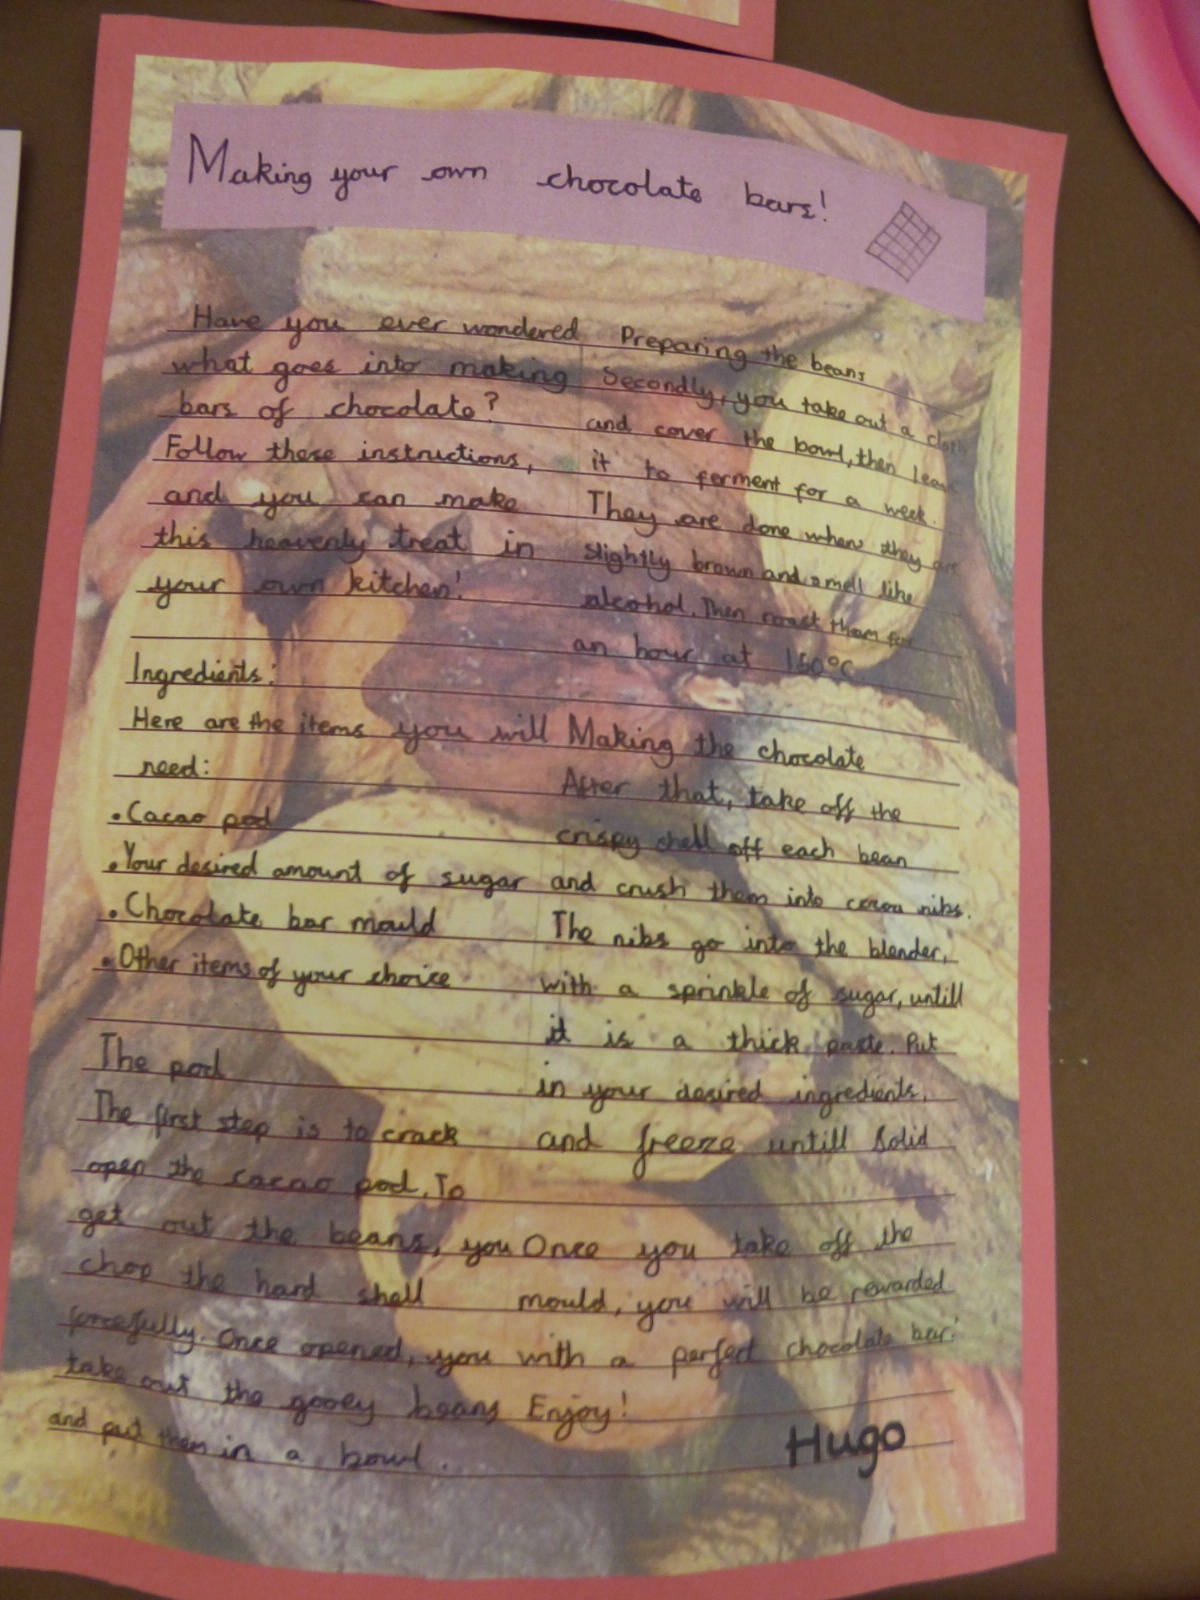 Making your own chocolate bars!
Have you ever wondered
what goes into making
bars of chocolate?
Follow these instructions,
and you can make
this heavenly treat in
your own kitchen!
Ingredients:
Here are the items you will
need:
•Cacao pod
•Your desired amount of sugar
•Chocolate bar mould
•Other items of your choice
The pod
The first step is to crack
open the cacao pod. To
get out the beans, you
chop the hard shell
forcefully. Once opened, you
take out the gooey beans
and put them in a bowl.
Preparing the beans
Secondly, you take out a cloth
and cover the bowl, then leave
it to ferment for a week.
They are done when they are
slightly brown and smell like
alcohol. Then roast them for
an hour at °C
Making the chocolate
After that, take off the
crispy shell off each bean
and crush them into nibs.
The nibs go into the blender,
with a sprinkle of sugar, untill
it is a thick paste. Put
in your desired ingredients,
and freeze untill solid
Once you take off the
mould, you will be rewarded
with a perfect chocolate bar!
Enjoy!
Hugo